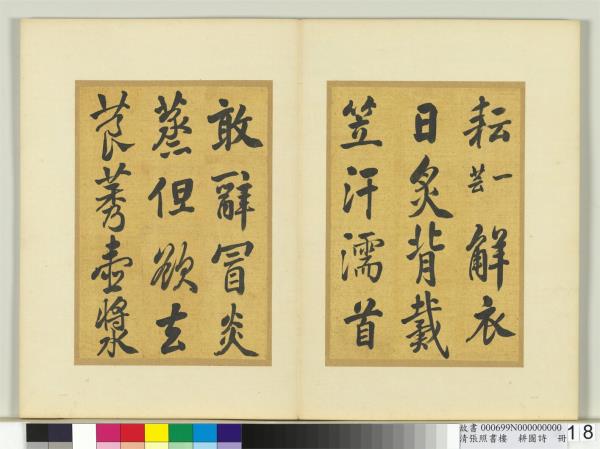 耘 一芸 解衣
日炙背戴
笠汗濡首
敢辭冒炎
蒸但欲去
莨莠壺漿
故書 000699N000000000
清張照書樓 耕圖詩 冊
18